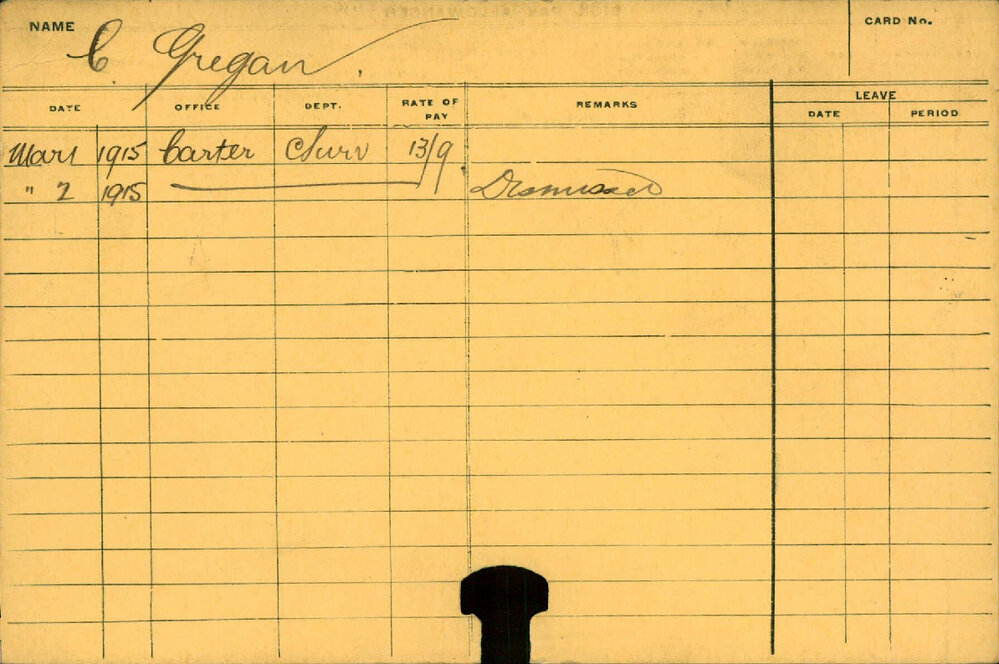 NAME C. Gregan. CARD No.
LEAVE
DATE OFFICE DEPT. RATE OF PAY REMARKS DATE PERIOD
Mar 1 1915 Carter CSurv 13/9
" 2 1915 Dismissed